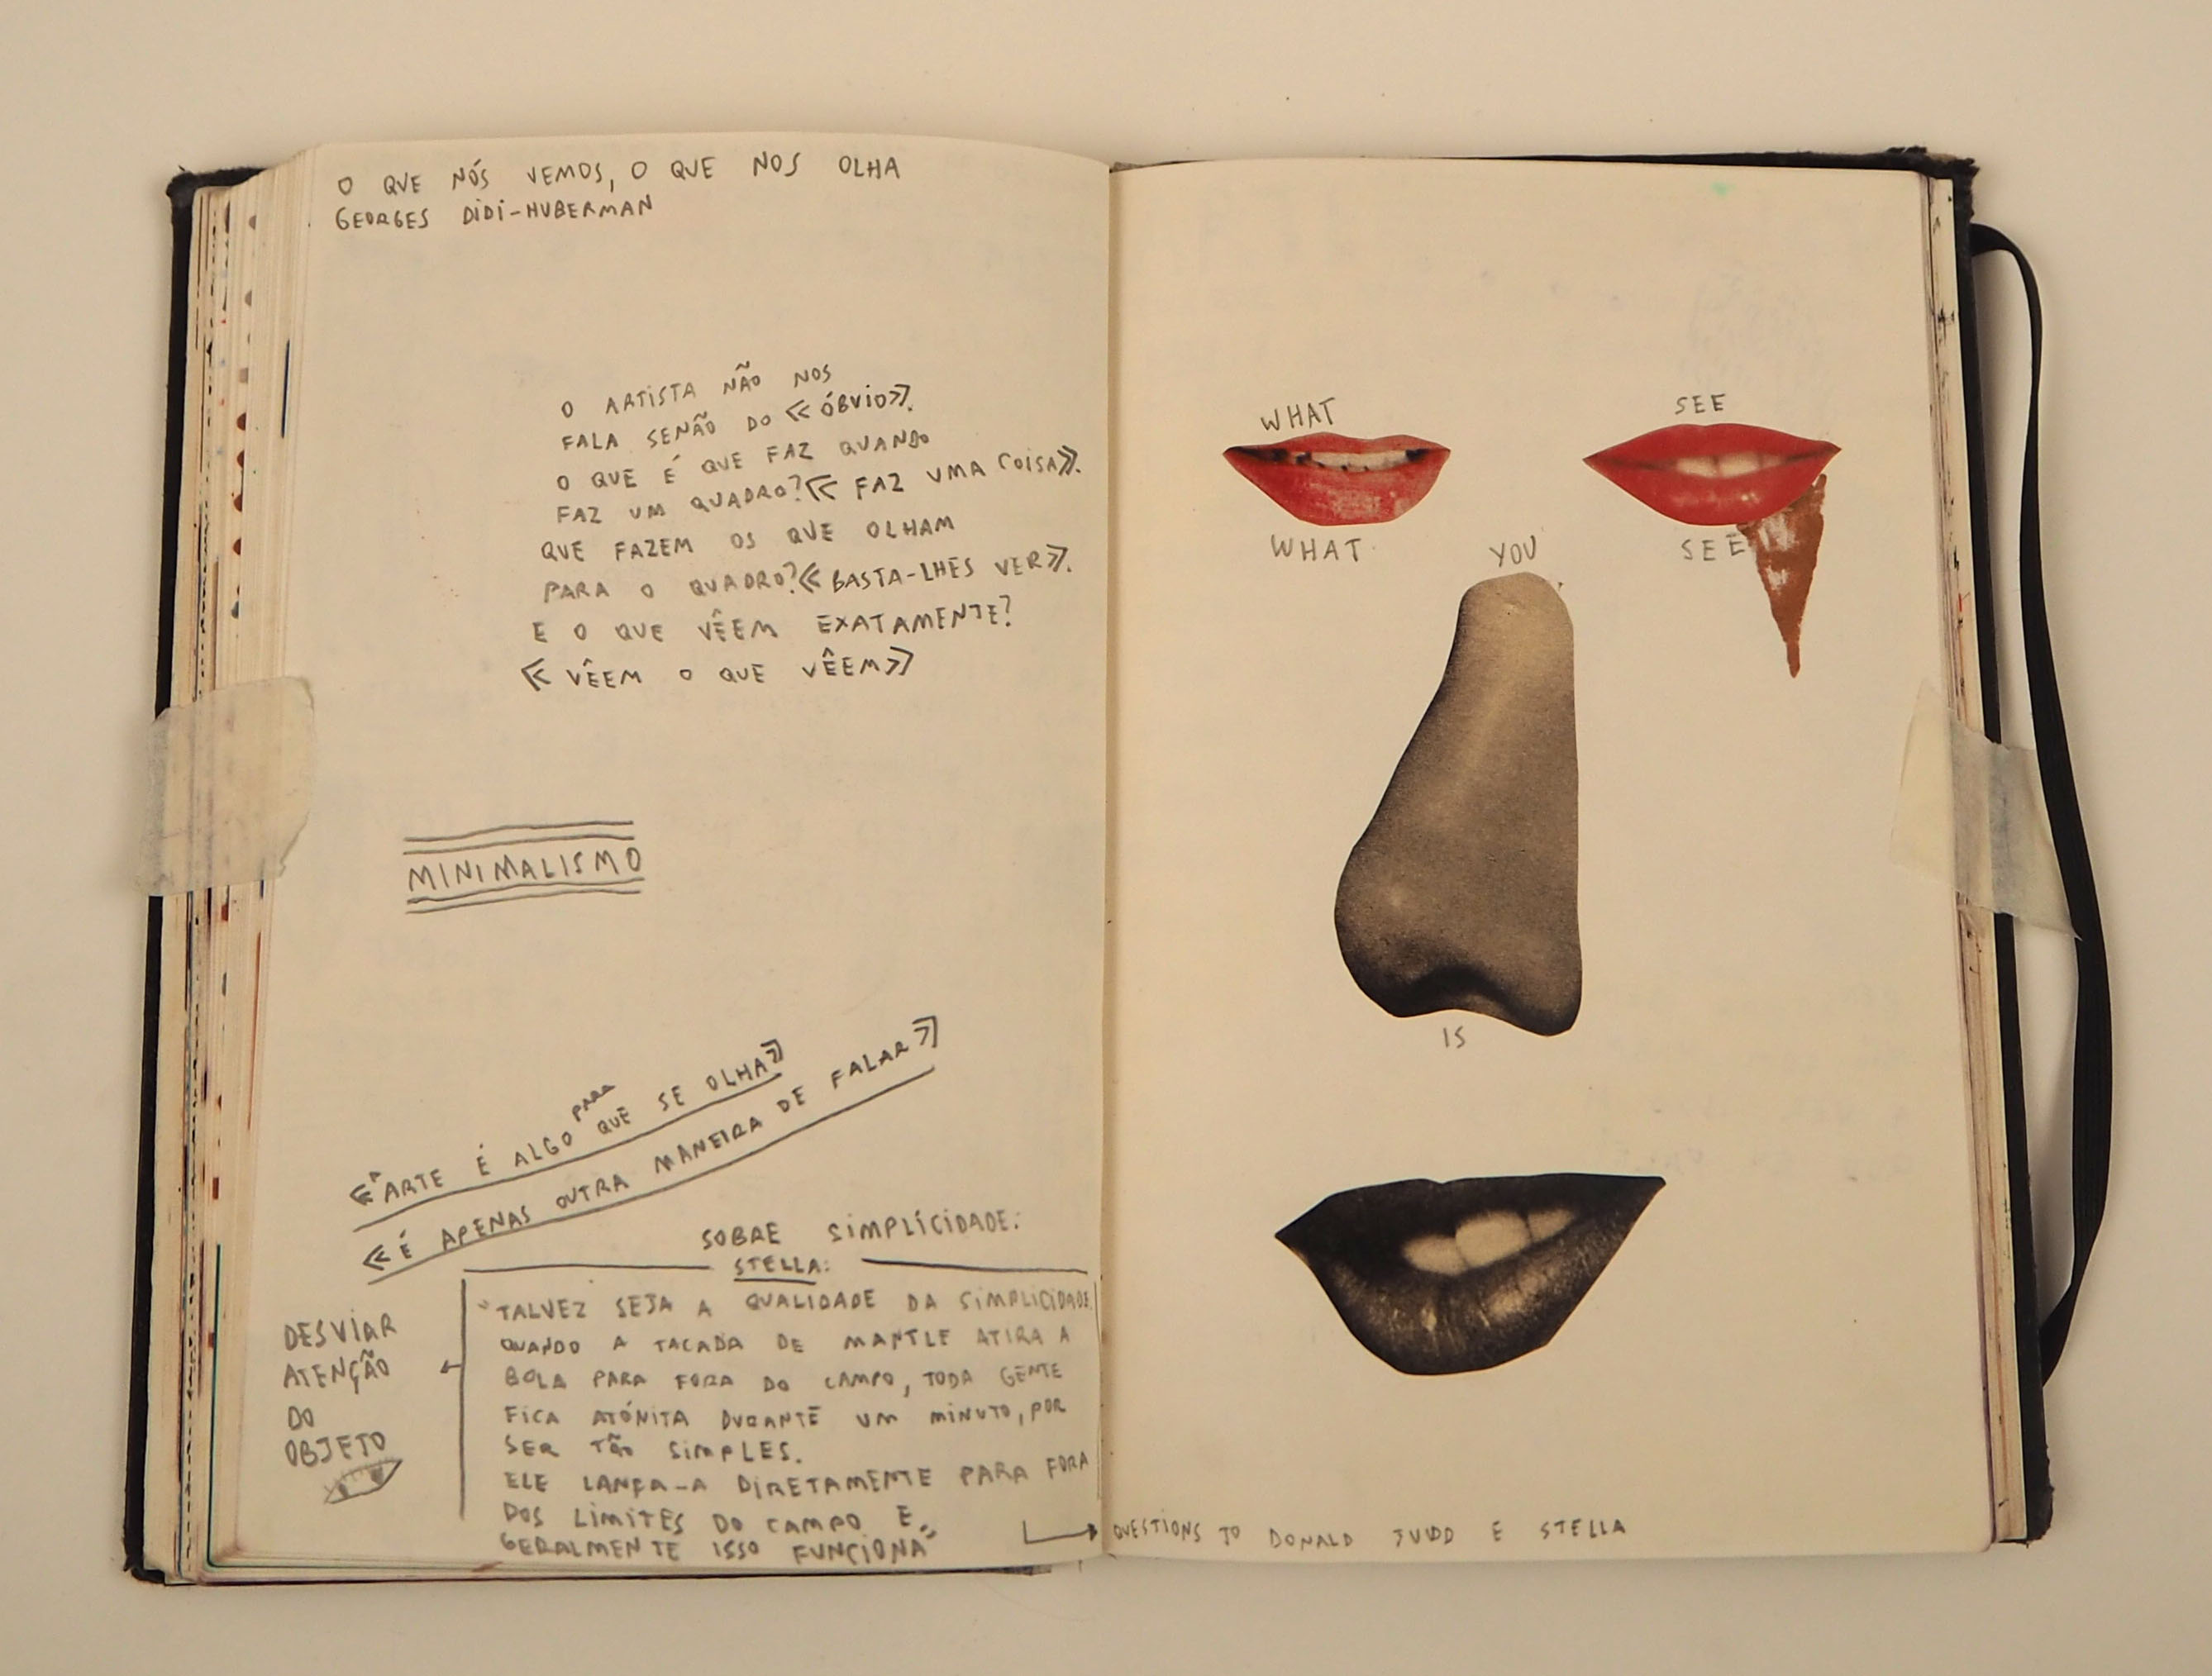 O QUE NÓS VEMOS, O QUE NOS OLHA
GEORGES DIDI-HUBERMAN
O ARTISTA NÃO NOS
FALA SENÃO DO «ÓBVIO».
O QUE É QUE FAZ QUANDO
FAZ UM QUADRO? «FAZ UMA COISA».
QUE FAZEM OS QUE OLHAM
PARA O QUADRO? «BASTA-LHES VER».
E O QUE VÊEM EXATAMENTE?
«VÊEM O QUE VÊEM»
MINIMALISMO
«A ARTE É ALGO PARA QUE SE OLHA»
«É APENAS OUTRA MANEIRA DE FALAR»
SOBRE SIMPLICIDADE:
STELLA:
"TALVEZ SEJA A QUALIDADE DA SIMPLICIDADE.
QUANDO A TACADA DE MANTLE ATIRA A
BOLA PARA FORA DO CAMPO, TODA GENTE
FICA ATÓNITA DURANTE UM MINUTO, POR
SER TÃO SIMPLES.
ELE LANÇA-A DIRETAMENTE PARA FORA
DOS LIMITES DO CAMPO E
GERALMENTE ISSO FUNCIONA"
DESVIAR
ATENÇÃO
DO
OBJETO
WHAT SEE
WHAT YOU SEE
IS
QUESTIONS TO DONALD JUDD E STELLA